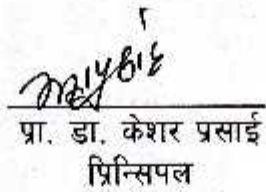 प्रा. डा. केशर प्रसाई
प्रिन्सिपल